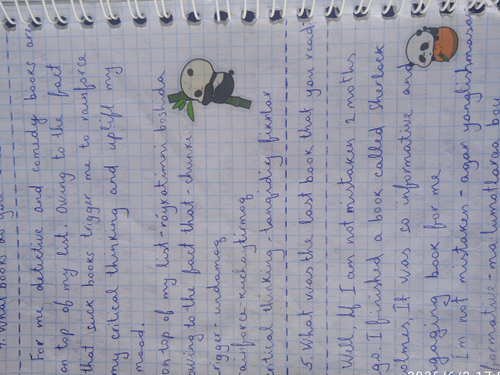 4. What books do you
For me detective and comedy books are
on top of my list. Owing to the fact
that suck books trigger me to rainforce
my critical thinking and uplift my
mood
on top of my list - roykatimni boshida
owing to the fact that - chunki
rigger - undamoq
ainforce - kuchaytirmoq
critical thinking - tanqidiy fikrlar
5. What was the last book that you read
Well, If I am not mistaken 2 moths
go I finished a book called Sherlock
olmes, It was so informative and
gaging book for me
I'm not mistaken - agar yanglishmasa
formative - ma'lumotlarga boy